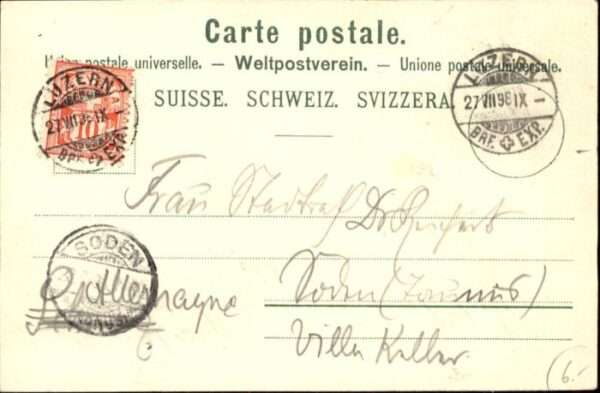 Carte postale.
Union postale universelle. — Weltpostverein. — Unione postale universale.
SUISSE. SCHWEIZ. SVIZZERA.
LUZERN
27 VII 98 IX
BRF. EXP.
10
LUZERN
27 VII 98 IX –
BRF. EXP.
Frau Stadtrath Dr Reichert
SODEN
Soden (Taunus)
Villa Keller
6.-